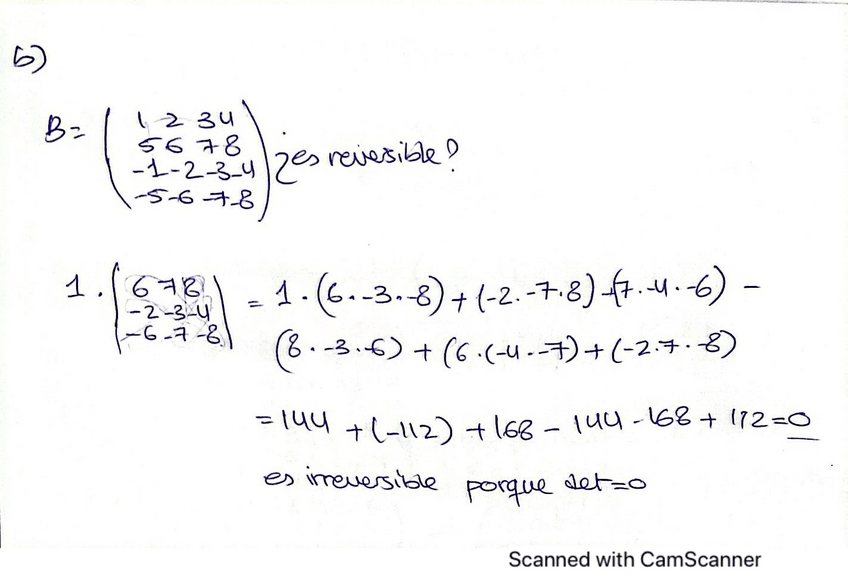 b)
B= ( 1 2 3 4
5 6 7 8
-1 -2 -3 -4
-5 -6 -7 -8 ) ¿es reversible?
1 · | 6 7 8
-2 -3 -4
-6 -7 -8 | = 1 · (6 · -3 · -8) + (-2 · -7 · 8) + (7 · -4 · -6) -
(8 · -3 · -6) + (6 · (-4 · -7) + (-2 · 7 · -8)
= 144 + (-112) + 168 - 144 - 168 + 112 = 0
es irreversible porque det=0
Scanned with CamScanner